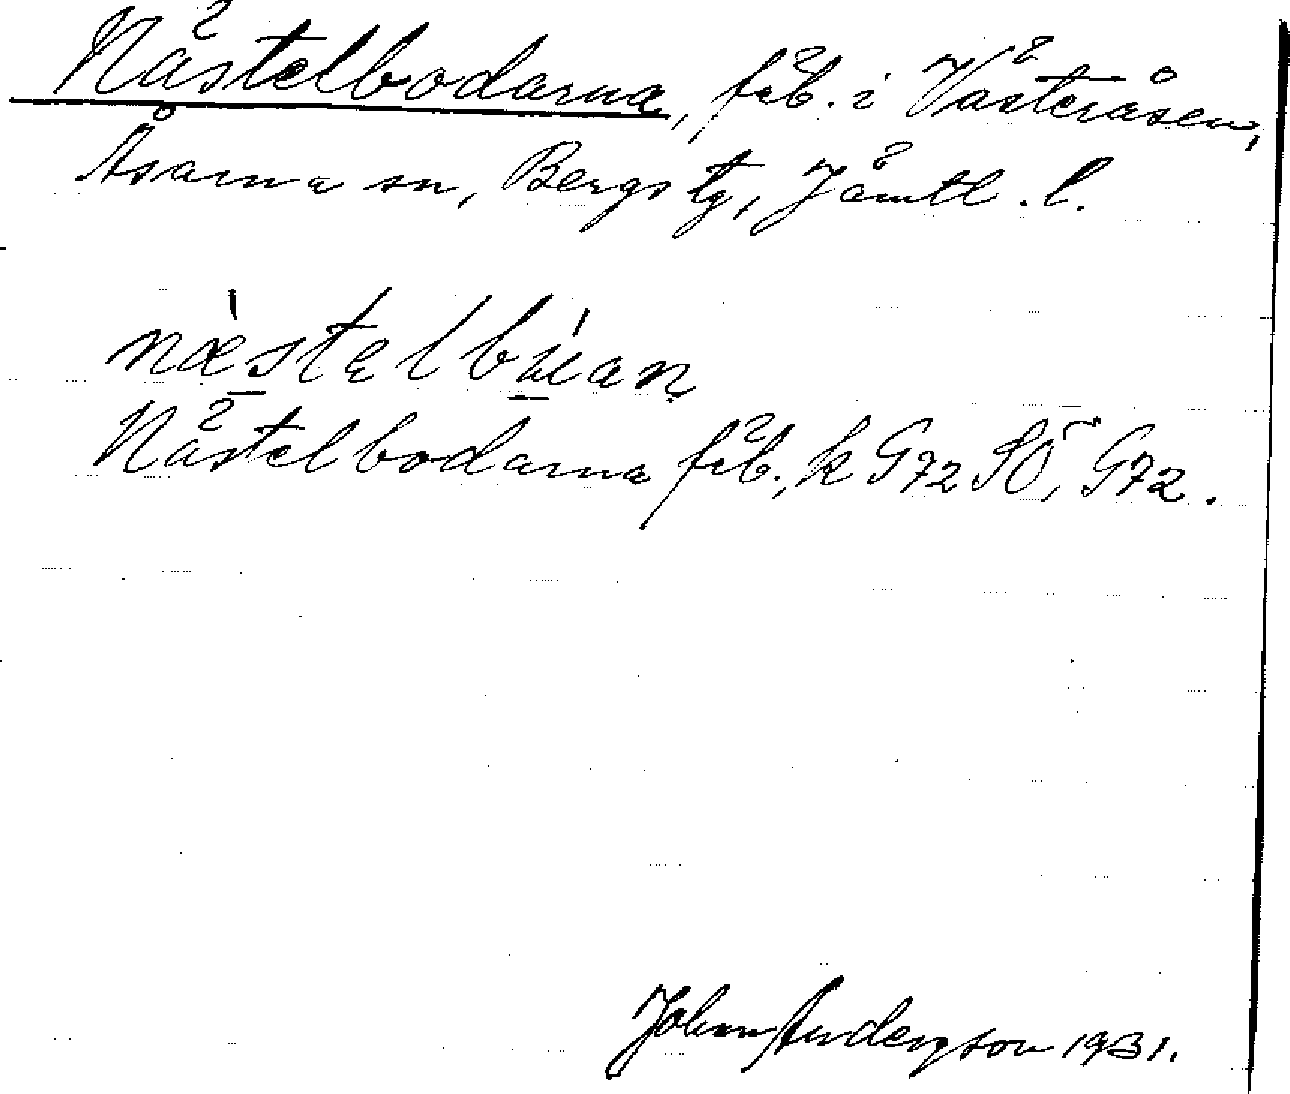 Nästelbodarna, fäb. i Västeråsen,
Åsarna sn, Bergs tg, Jämtl. l.
næ̀stelbúan
Nästelbodarna fäb., k G72 SÖ, G72.
Johan Andersson 1931.